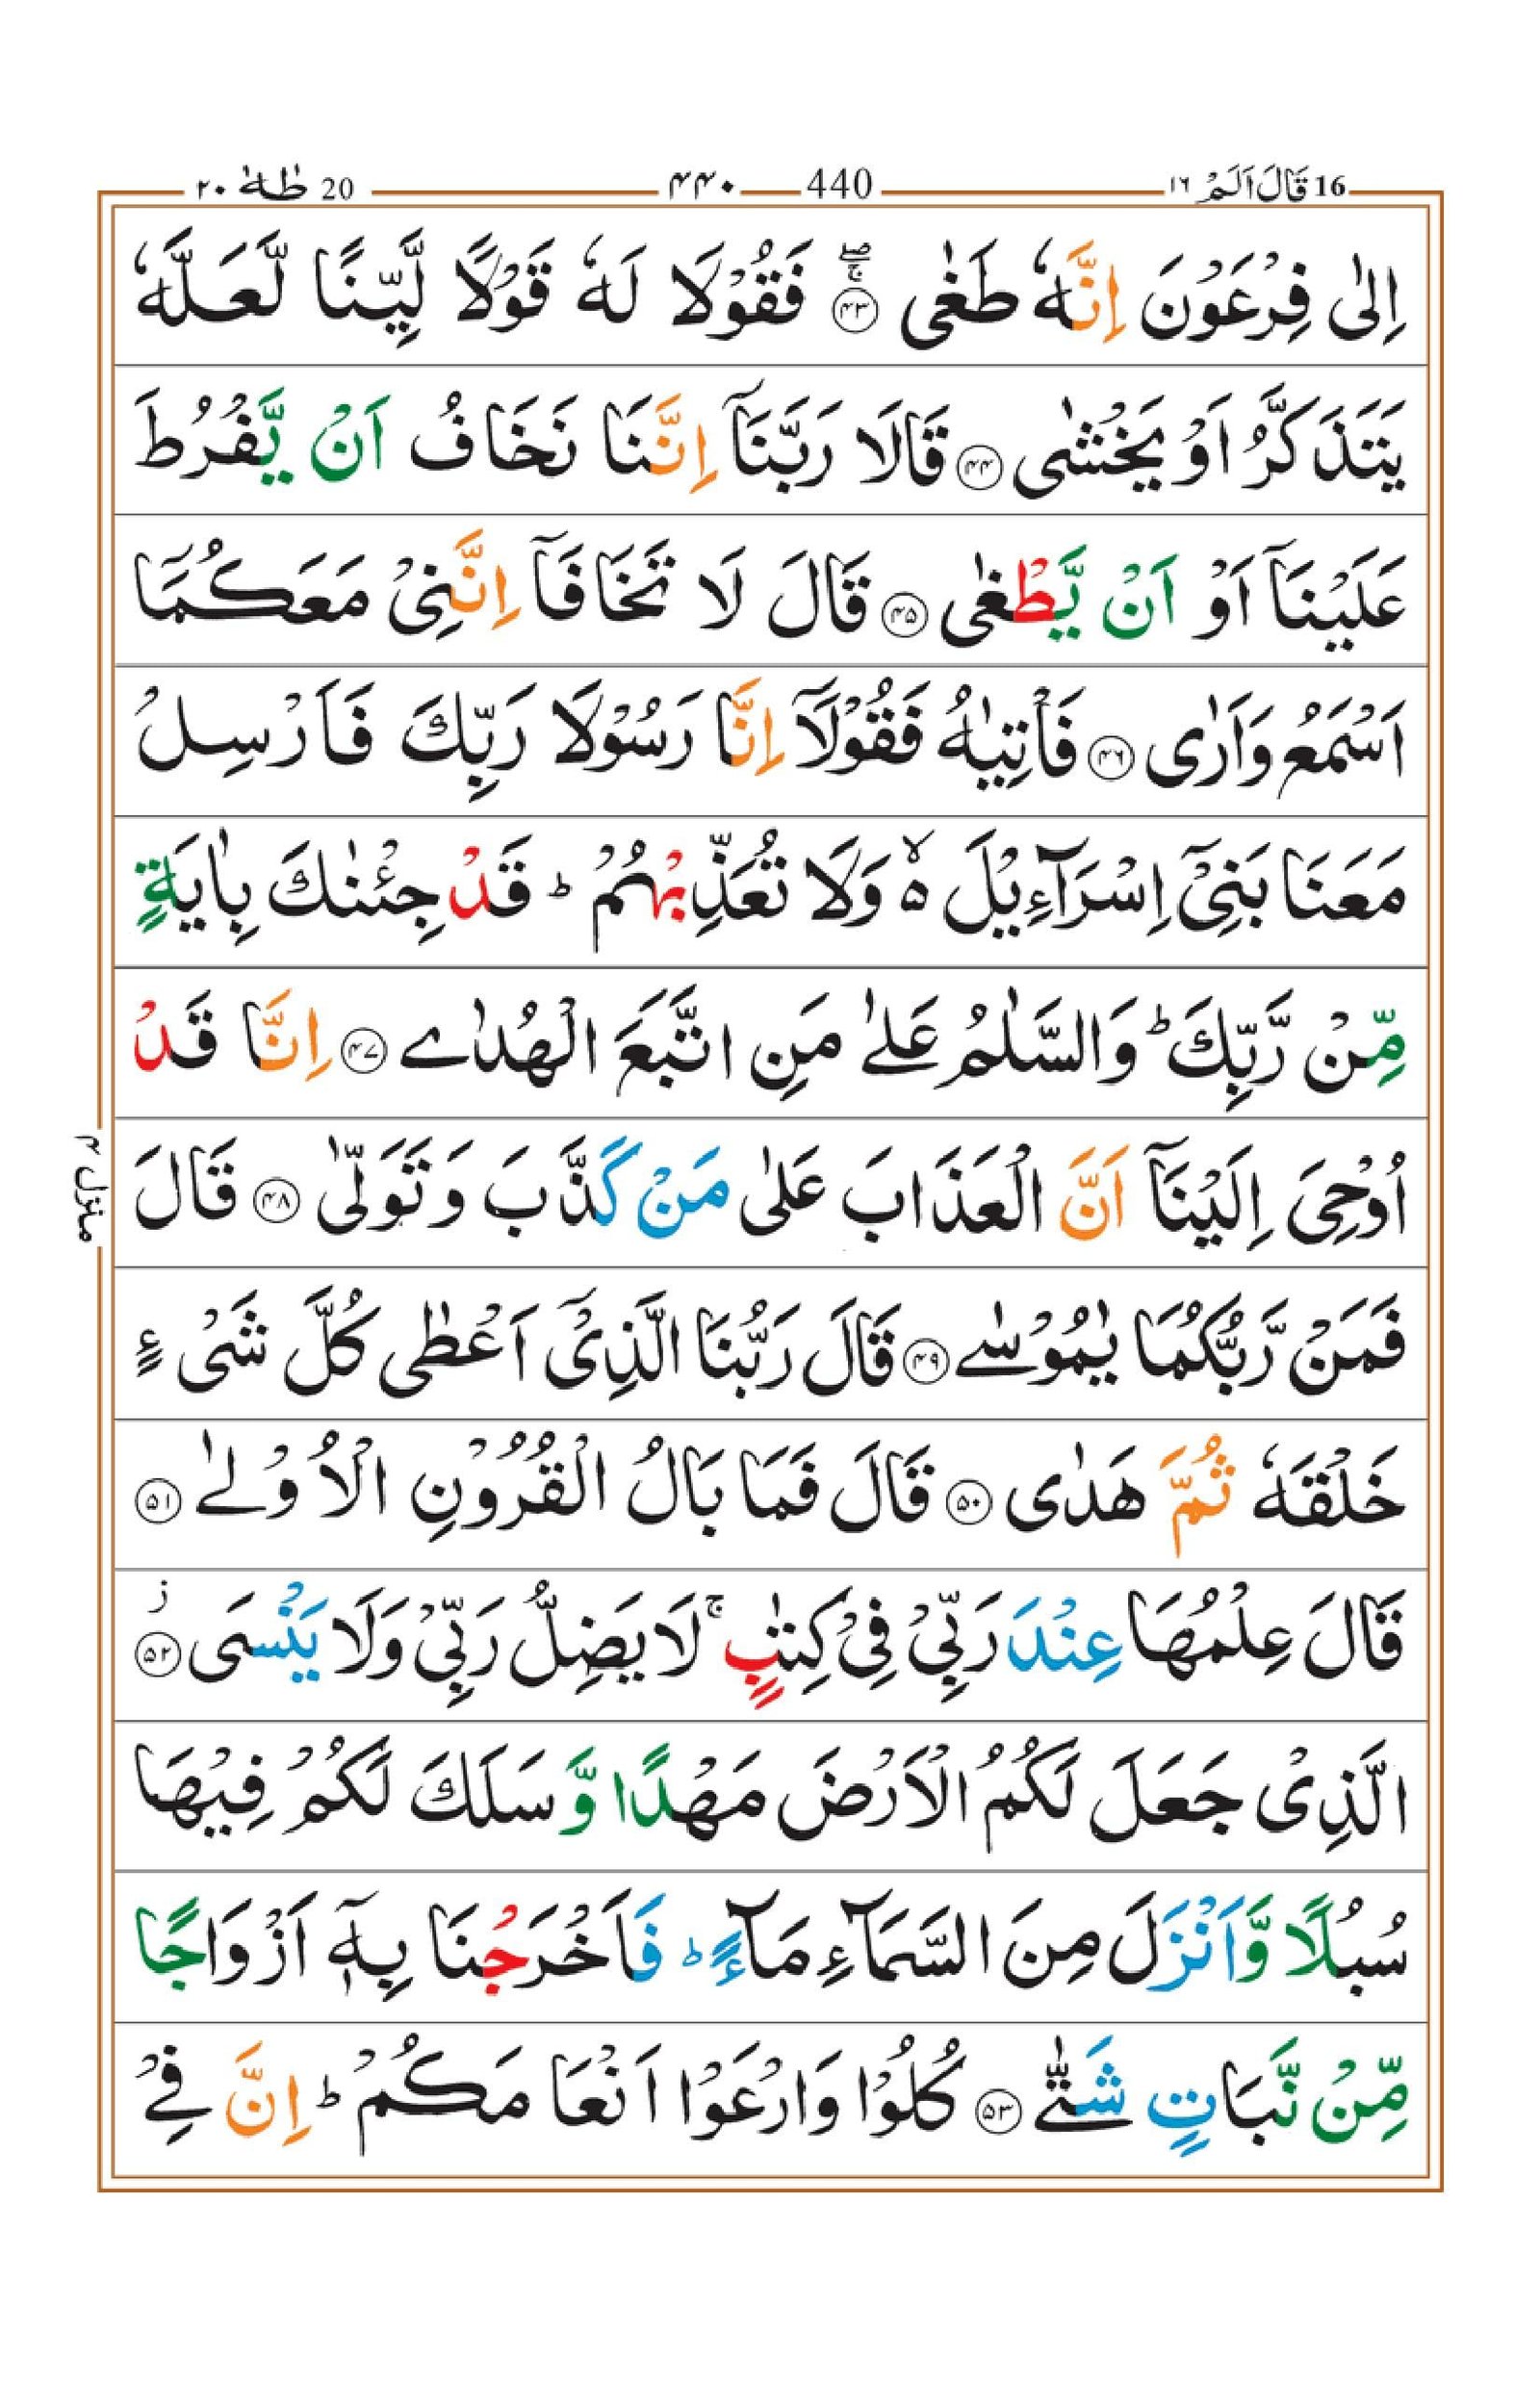 16 قَالَ اَلَمْ ١٦ 440 ۴۴۰ 20 طٰهٰ ۲۰
اِلٰى فِرْعَوْنَ اِنَّهٗ طَغٰى ۚۖ ﴿۴۳﴾ فَقُوْلَا لَهٗ قَوْلًا لَّيِّنًا لَّعَلَّهٗ
يَتَذَكَّرُ اَوْ يَخْشٰى ﴿۴۴﴾ قَالَا رَبَّنَاۤ اِنَّنَا نَخَافُ اَنْ يَّفْرُطَ
عَلَيْنَاۤ اَوْ اَنْ يَّطْغٰى ﴿۴۵﴾ قَالَ لَا تَخَافَاۤ اِنَّنِىْ مَعَكُمَاۤ
اَسْمَعُ وَاَرٰى ﴿۴۶﴾ فَاْتِيٰهُ فَقُوْلَاۤ اِنَّا رَسُوْلَا رَبِّكَ فَاَرْسِلْ
مَعَنَا بَنِىْۤ اِسْرَآءِيْلَ ۙ۵ وَلَا تُعَذِّبْهُمْ ؕ قَدْ جِئْنٰكَ بِاٰيَةٍ
مِّنْ رَّبِّكَ ؕ وَالسَّلٰمُ عَلٰى مَنِ اتَّبَعَ الْهُدٰے ﴿۴۷﴾ اِنَّا قَدْ
اُوْحِىَ اِلَيْنَاۤ اَنَّ الْعَذَابَ عَلٰى مَنْ كَذَّبَ وَتَوَلّٰى ﴿۴۸﴾ قَالَ
فَمَنْ رَّبُّكُمَا يٰمُوْسٰے ﴿۴۹﴾ قَالَ رَبُّنَا الَّذِىْۤ اَعْطٰى كُلَّ شَىْءٍ
خَلْقَهٗ ثُمَّ هَدٰى ﴿۵۰﴾ قَالَ فَمَا بَالُ الْقُرُوْنِ الْاُوْلٰے ﴿۵۱﴾
قَالَ عِلْمُهَا عِنْدَ رَبِّىْ فِىْ كِتٰبٍ ۚ لَا يَضِلُّ رَبِّىْ وَلَا يَنْسَى ز ﴿۵۲﴾
الَّذِىْ جَعَلَ لَكُمُ الْاَرْضَ مَهْدًا وَّسَلَكَ لَكُمْ فِيْهَا
سُبُلًا وَّاَنْزَلَ مِنَ السَّمَآءِ مَآءً ؕ فَاَخْرَجْنَا بِهٖۤ اَزْوَاجًا
مِّنْ نَّبَاتٍ شَتّٰے ﴿۵۳﴾ كُلُوْا وَارْعَوْا اَنْعَامَكُمْ ؕ اِنَّ فِےْ
منزل ۴